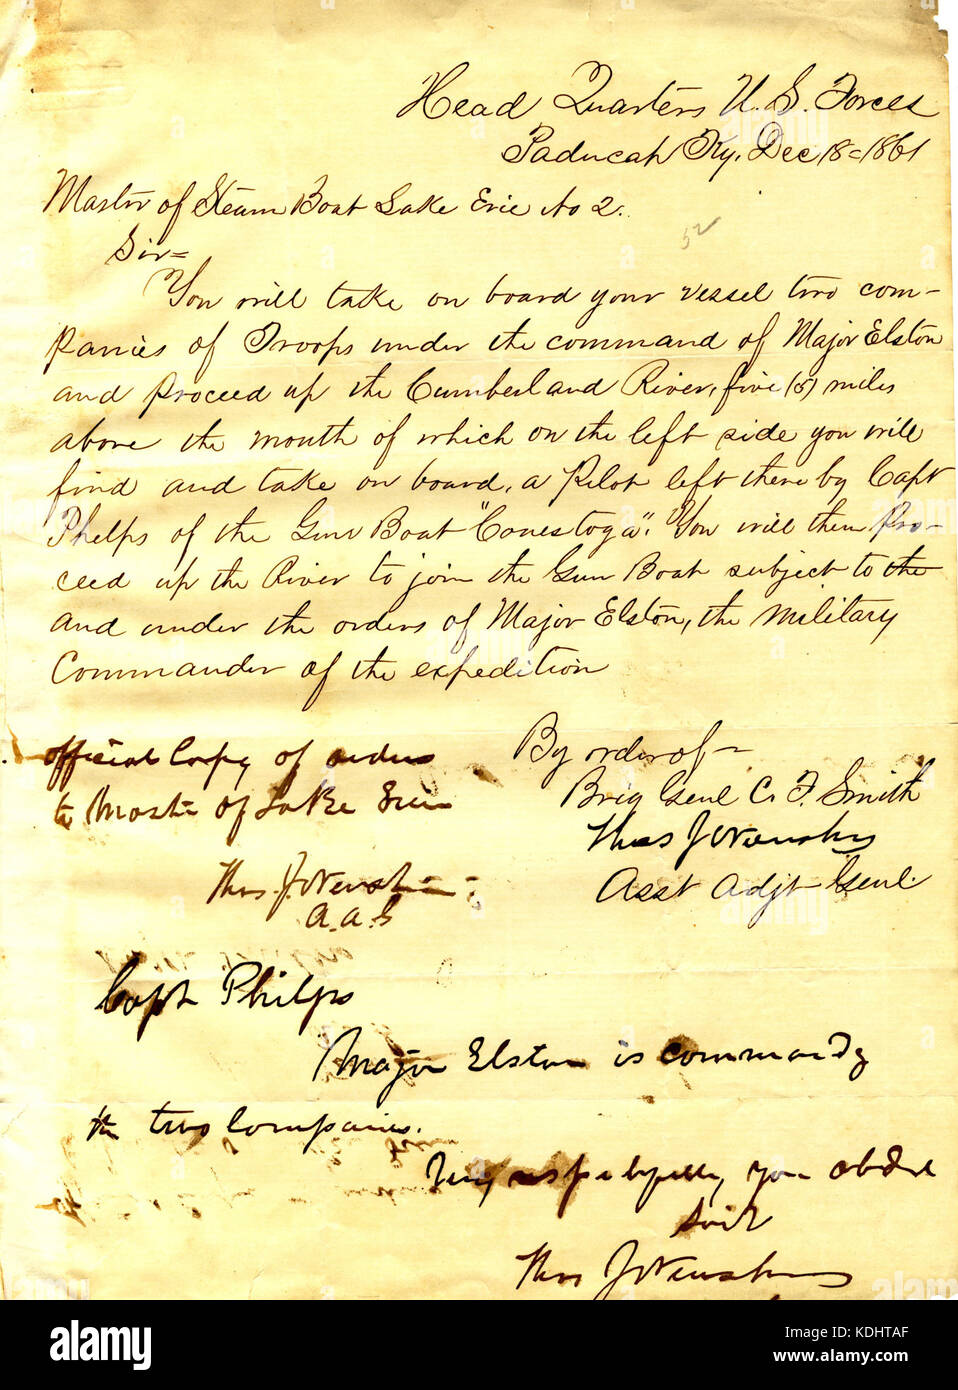 Head Quarters U. S. Forces
Paducah Ky. Dec 18=1861
Master of Steam Boat Lake Erie No 2.
52
Sir=
You will take on board your vessel two com-
panies of Troops under the command of Major Elston
and proceed up the Cumberland River, five (5) miles
above the mouth of which on the left side you will
find and take on board, a Pilot left there by Capt
Phelps of the Gun Boat "Conestoga". You will then pro-
ceed up the River to join the Gun Boat subject to the
and under the orders of Major Elston, the military
Commander of the expedition
By order of
Brig Genl C. F. Smith
Thos J Newsham
Asst Adjt Genl.
official Copy of orders
to Master of Lake Erie
Thos. J. Newsham
A. A. G
Capt Philps
Major Elston is commandg
the two Companies.
Very respectfully your obdt
Svt
Thos J Newsham
alamy
KDHTAF